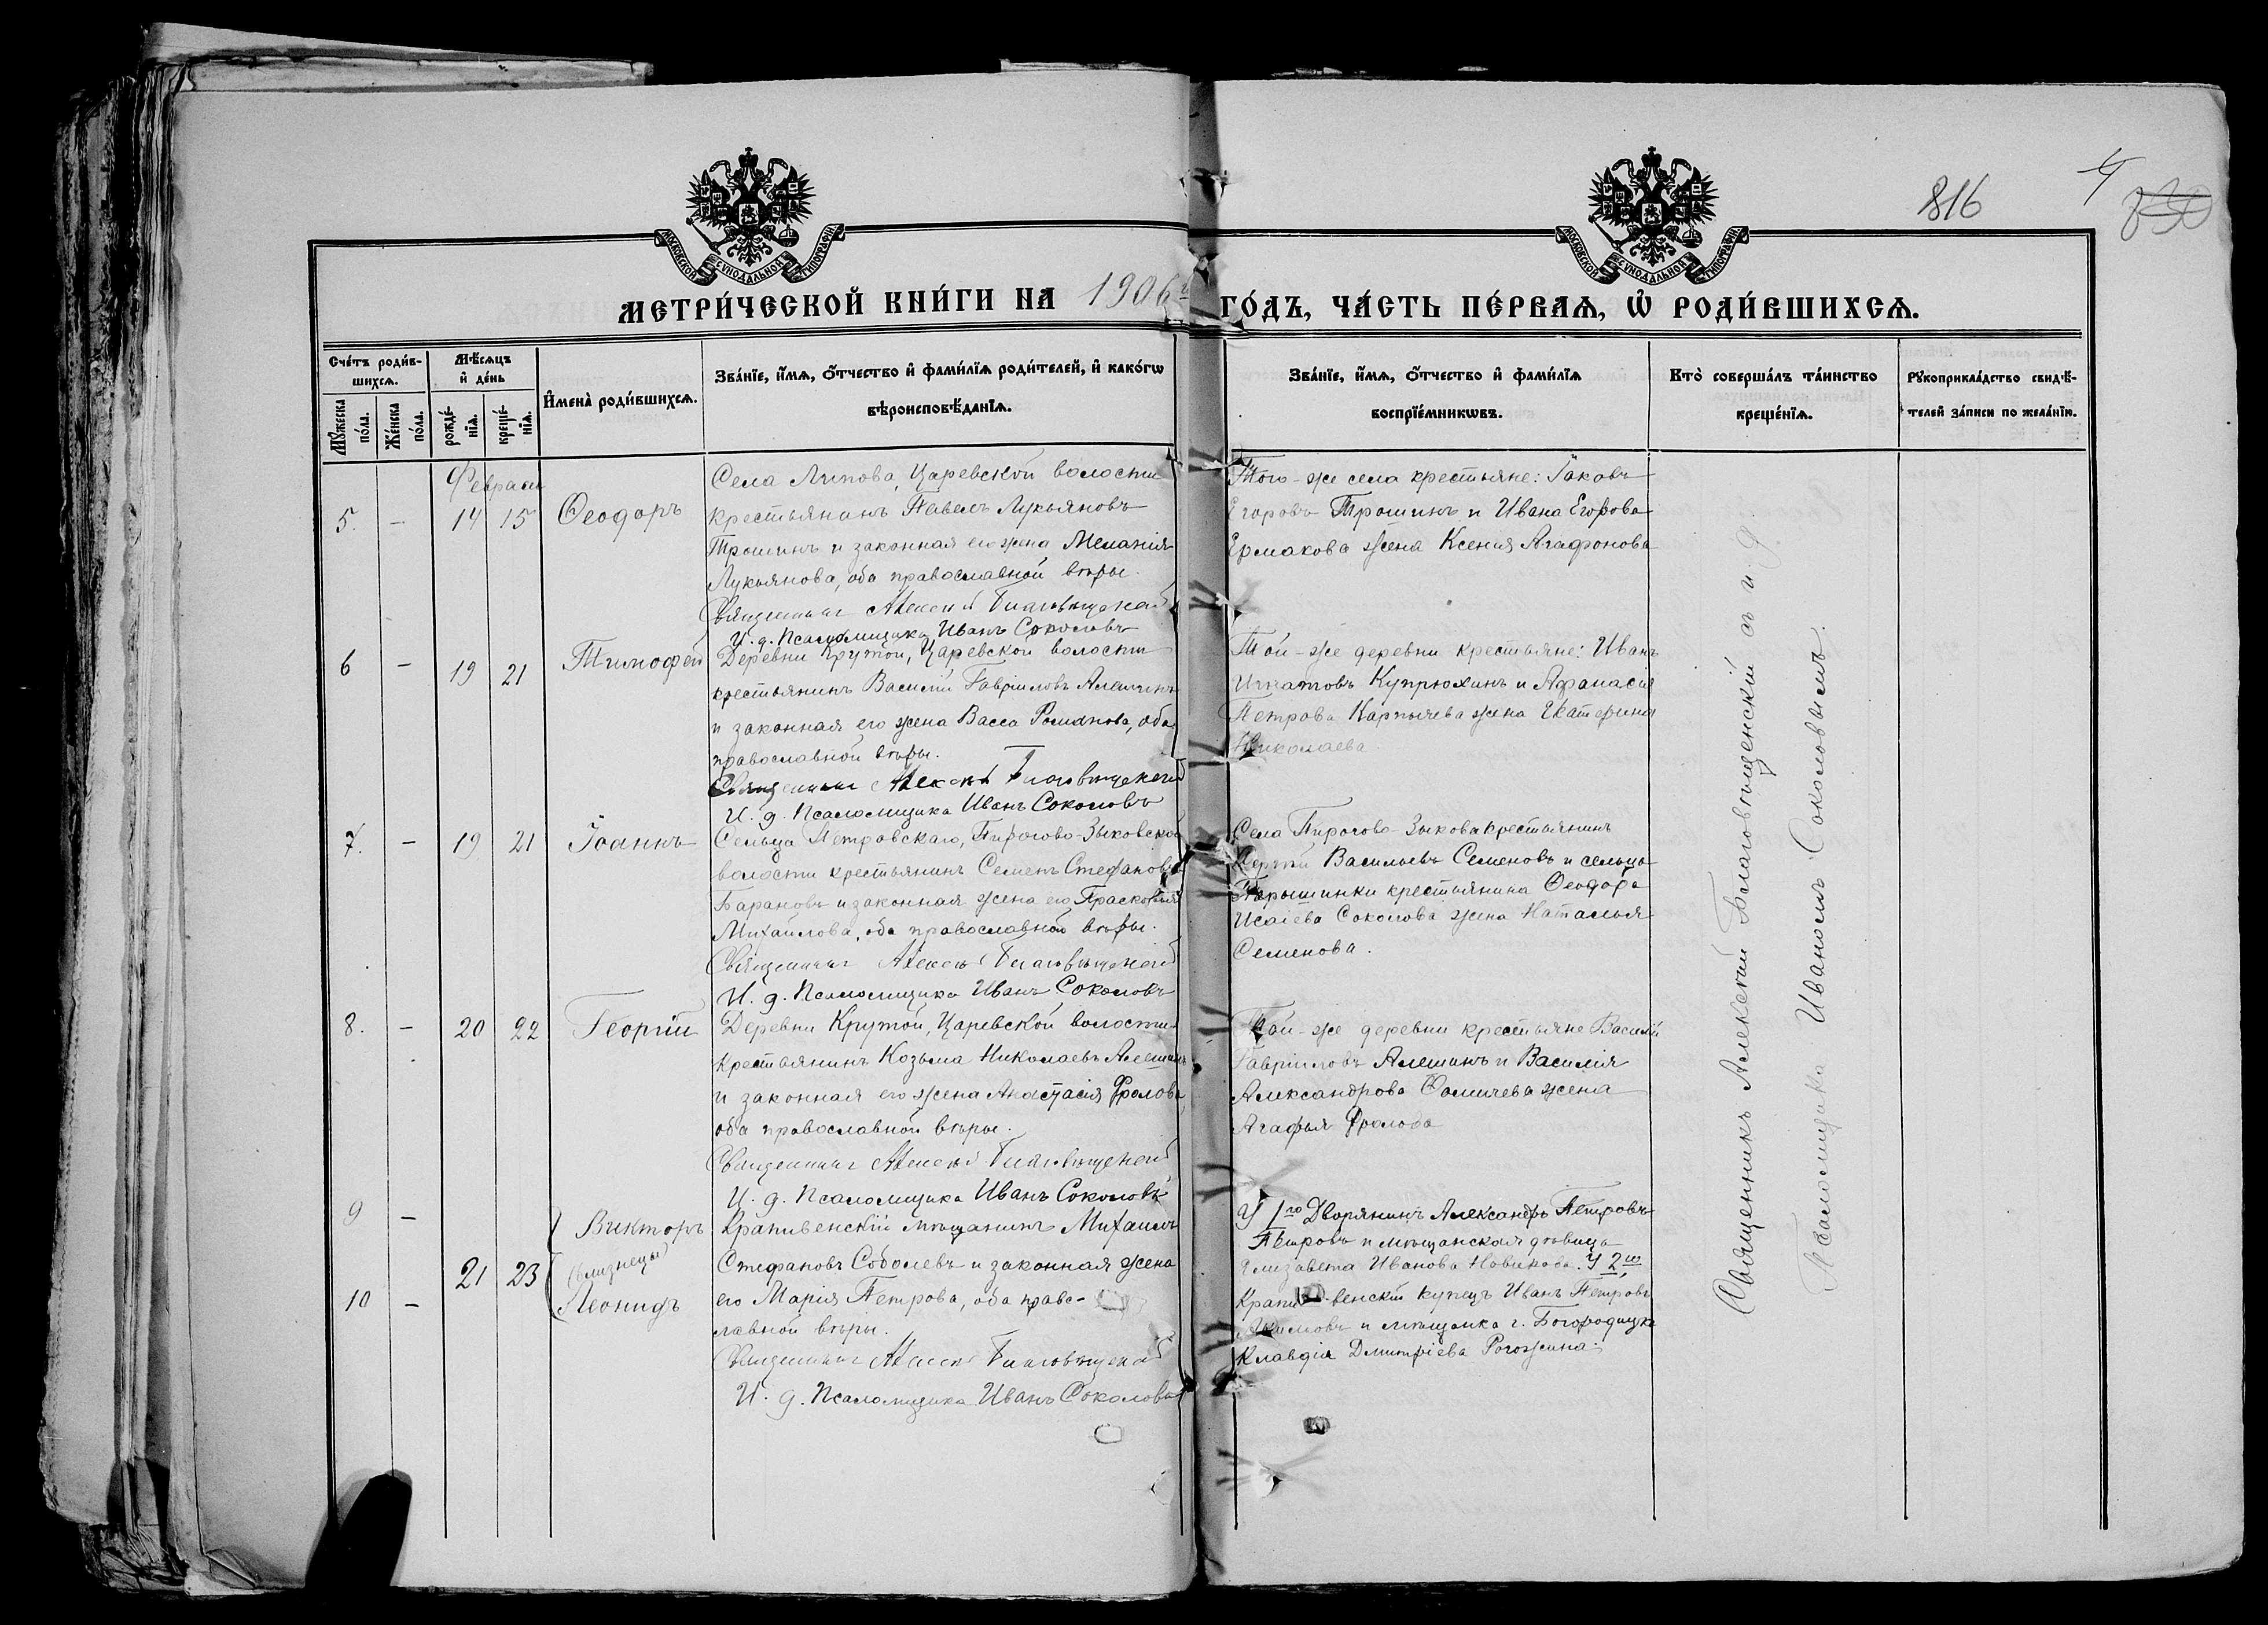 816
4
830
МОСКОВСКОЙ СѴНОДАЛЬНОЙ ТИПОГРАФІИ
МОСКОВСКОЙ СѴНОДАЛЬНОЙ ТИПОГРАФІИ
МЕТРИ́ЧЕСКОЙ КНИ́ГИ НА 1906 г. ГО́ДЪ, ЧА́СТЬ ПЕ́РВАѦ, Ѡ҆ РОДИ́ВШИХСѦ.
Сче́тъ роди́в-
шихсѧ.
Мꙋ́жеска по́ла.
Же́нска по́ла.
Мѣ́сѧцъ
и҆ де́нь
рожде́-
нїѧ.
креще́-
нїѧ.
И҆мена̀ роди́вшихсѧ.
Зва́нїе, и҆́мѧ, ѻ҆́тчество и҆ фами́лїѧ роди́телей, и҆ како́гѡ
вѣроисповѣ́данїѧ.
Зва́нїе, и҆́мѧ, ѻ҆́тчество и҆ фами́лїѧ
воспрїе́мникѡвъ.
Кто̀ соверша́лъ та́инство
креще́нїѧ.
Рꙋкоприкла́дство свидѣ́-
телей за́писи по жела́нїю.
Февраль
5. - 14 15 Ѳеодоръ
Села Липова, Царевской волости
крестьянинъ Павелъ Лукьяновъ
Трошинъ и законная его жена Меланія
Лукьянова, оба православной вѣры.
Священникъ Алексій Благовѣщенскій
И. д. Псаломщика Иванъ Соколовъ
Того-же села крестьяне: Іаковъ
Егоровъ Трошинъ и Ивана Егорова
Ермакова жена Ксения Агафонова
6 - 19 21 Тимофей
Деревни Крутой, Царевской волости
крестьянинъ Василій Гавріиловъ Алешинъ
и законная его жена Васса Романова, оба
православной вѣры.
Священникъ Алексѣй Благовѣщенскій
И. д. Псаломщика Иванъ Соколовъ
Той-же деревни крестьяне: Иванъ
Игнатовъ Купрюхинъ и Афанасія
Петрова Карпычева жена Екатерина
Николаева.
7. - 19 21 Іоаннъ
Сельца Петровскаго, Пирогово-Зыковской
волости крестьянинъ Семенъ Стефановъ
Барановъ и законная жена его Прасковья
Михайлова, оба православной вѣры.
Священникъ Алексѣй Благовѣщенскій
И. д. Псаломщика Иванъ Соколовъ
Села Пирогово-Зыкова крестьянинъ
Сергій Васильевъ Семеновъ и сельца
крестьянина Ѳеодора
Исаіева Соколова жена Наталья
Семенова.
8. - 20 22 Георгій
Деревни Крутой, Царевской волости
крестьянинъ Козьма Николаевъ Алешинъ
и законная его жена Анастасія Фролова,
оба православной вѣры.
Священникъ Алексѣй Благовѣщенскій
И. д. Псаломщика Иванъ Соколовъ
Той-же деревни крестьяне Василій
Гавріиловъ Алешинъ и Василія
Александрова Ѳомичева жена
Агафья Фролова
9 - Викторъ
(близнецы)
21 23
10 - Леонидъ
Крапивенскій мѣщанинъ Михаилъ
Стефановъ Соболевъ и законная жена
его Марія Петрова, оба право-
лавной вѣры.
Священникъ Алексѣй Благовѣщенскій
И. д. Псаломщика Иванъ Соколовъ
У 1го Дворянинъ Александръ Петровъ
Петровъ и мѣщанская дѣвица
Елизавета Иванова Новикова. У 2го
Крапивенскій купецъ Иванъ Петровъ
и мѣщанка г. Богородицка
Клавдія Димитріева Рогожина.
Священникъ Алексѣй Благовѣщенскій съ и. д.
Псаломщика Иваномъ Соколовымъ.